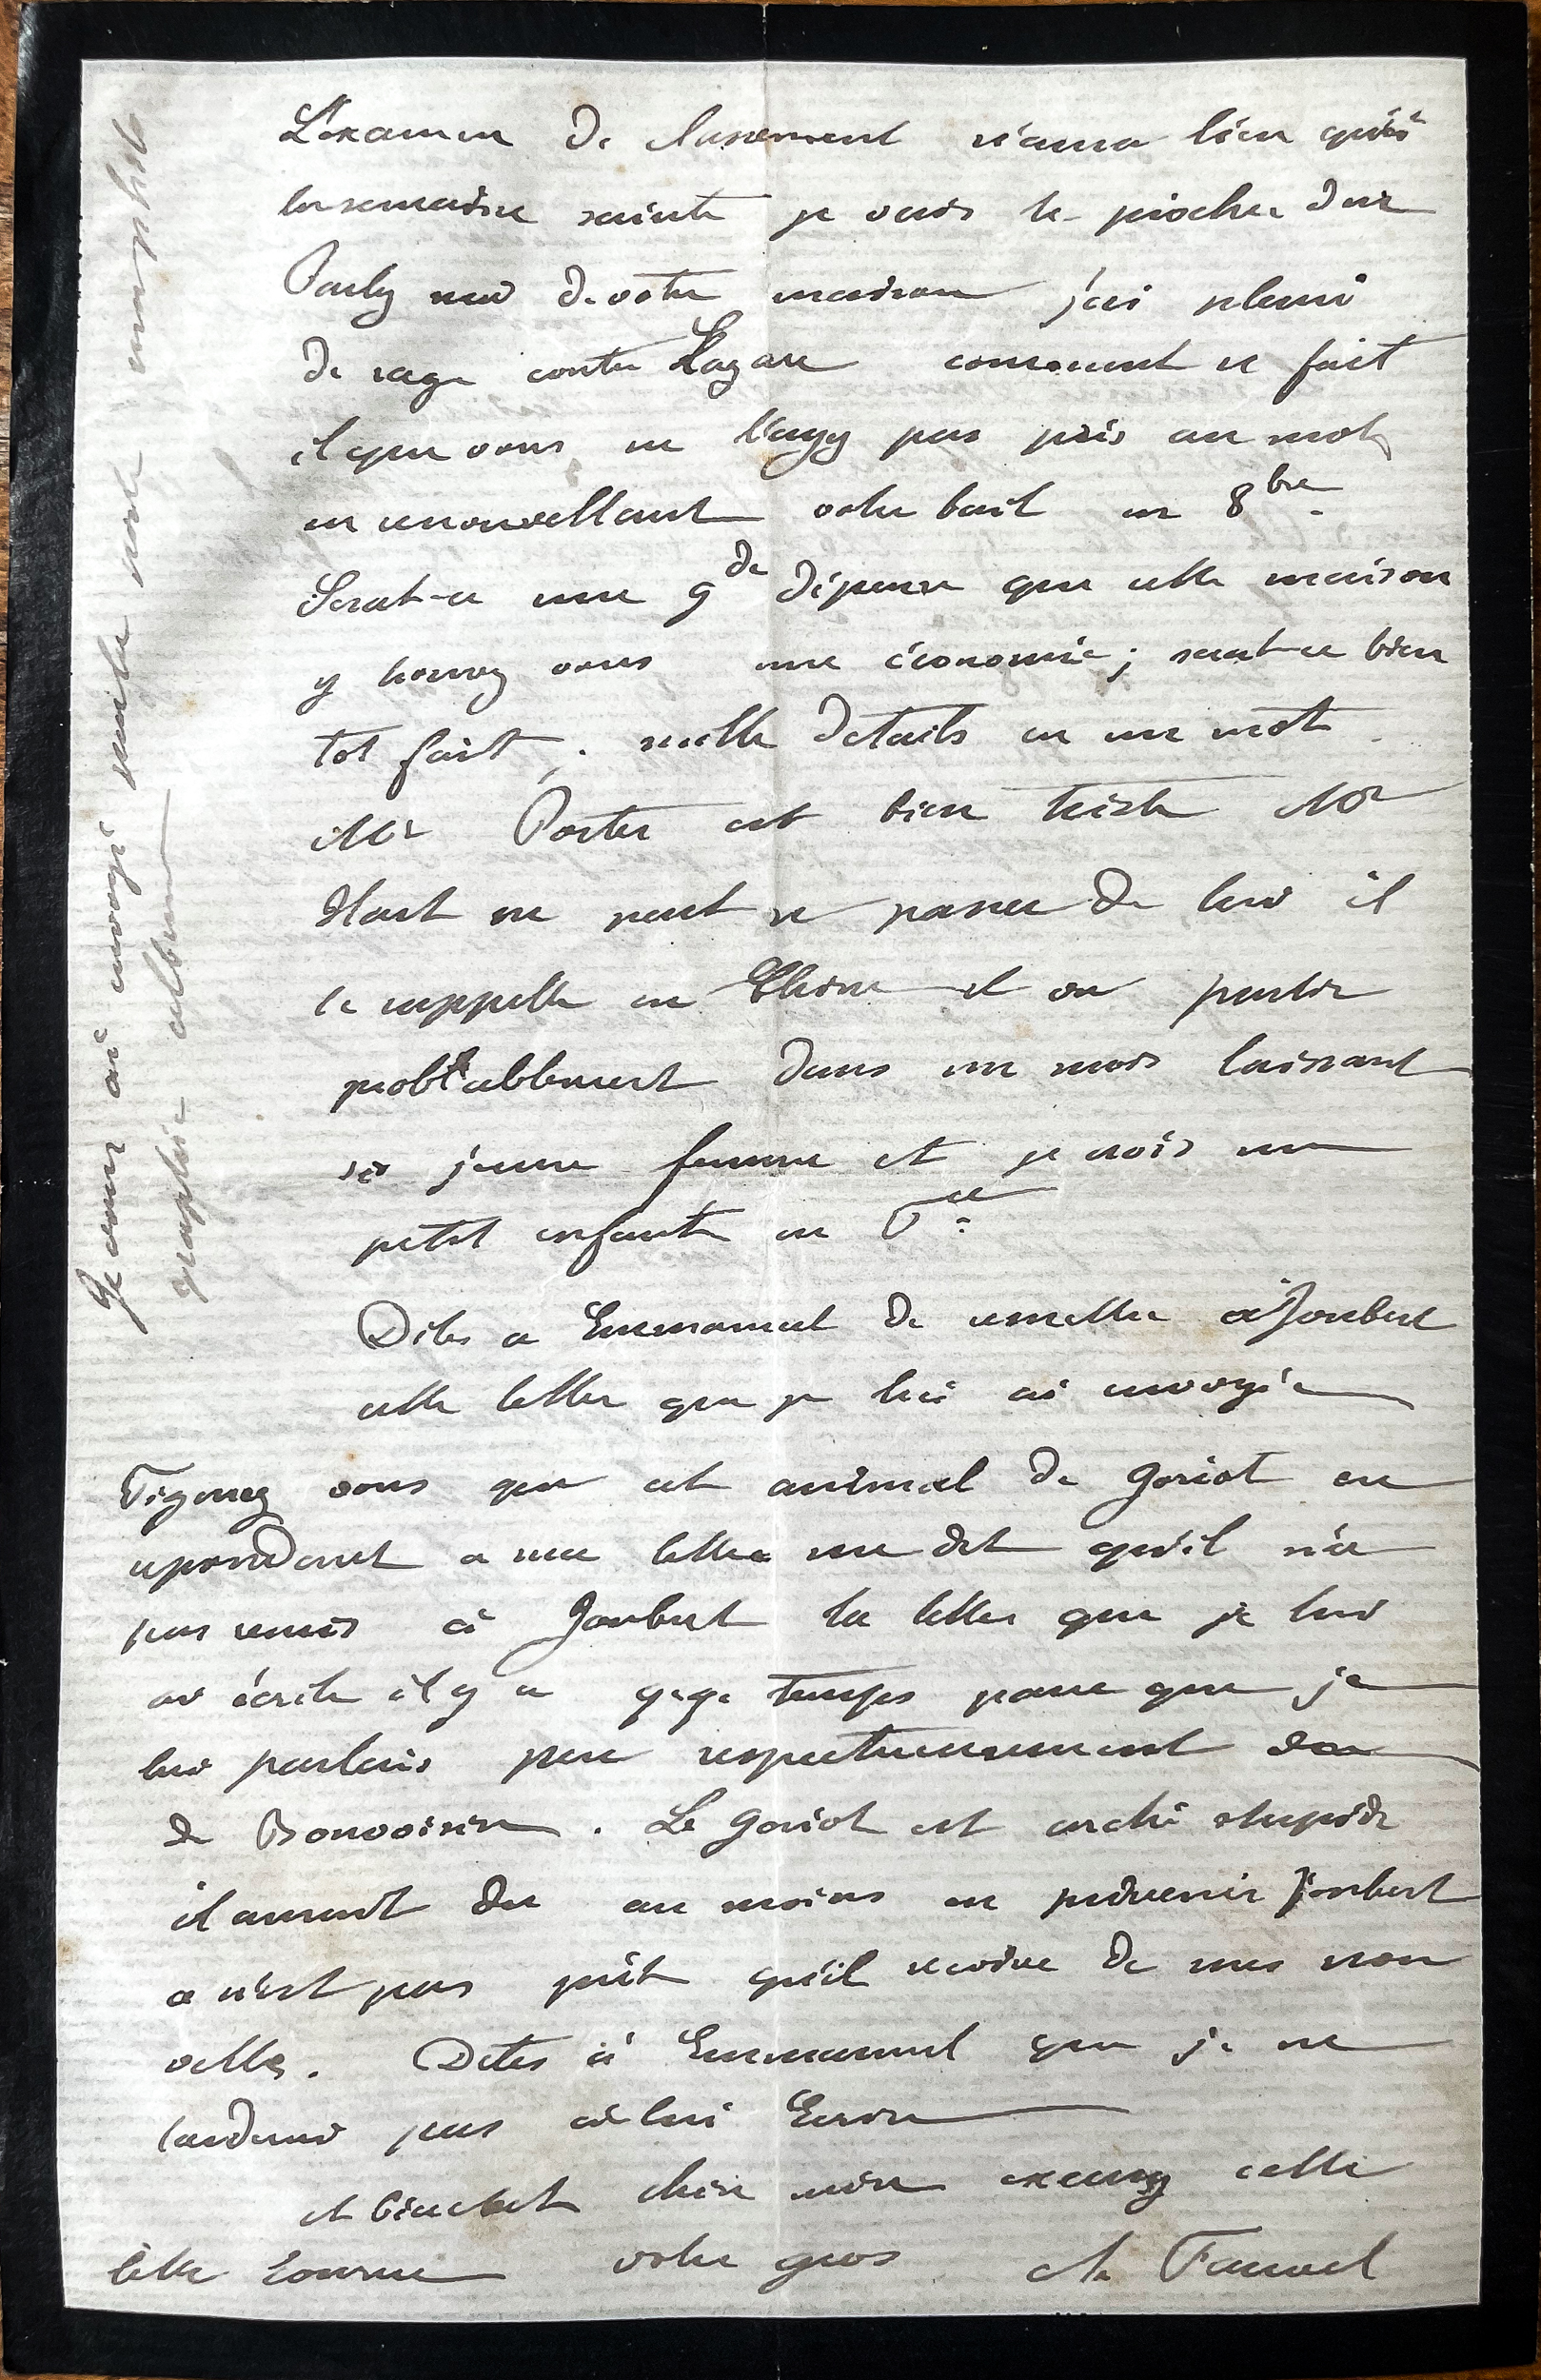 L'examen de classement n'aura lieu qu'à
la semaine sainte je vais le piocher dur
Parlez moi de votre maison j'ai pleuré
de rage contre Lazare comment se fait
il que vous ne l'ayez pas pris au mot
en renouvellant votre bail en 8bre.
Serat-ce une gde dépense que cette maison
y trouvez vous une économie ; serat-ce bien
tot fait ; mille details en un mot.
Mr Porter est bien triste Mr
Hart ne peut se passer de lui il
le rappelle en Chine il va partir
probablement dans un mois laissant
sa jeune femme et je crois un
petit enfant en
Dites a Emmanuel de remettre à Joubert
cette lettre que je lui ai envoyée
Figurez vous que cet animal de Goriot en
repondant a ma lettre me dit qu'il n'a
pas remis à Joubert la lettre que je lui
ai écrite il y a qqe temps parce que je
lui parlais peu respectueusement
de Bonvoisin. Le Goriot est archi stupide
il aurait du au moins en prévenir Joubert
a n'est pas qu'il recoive de mes nou
velles. Dites à Emmanuel que je ne
tarderai pas à lui Ecrire
et bientot chère mère excusez cette
lettre votre gros A. Fauvel
Je leur ai envoyé
graphie album